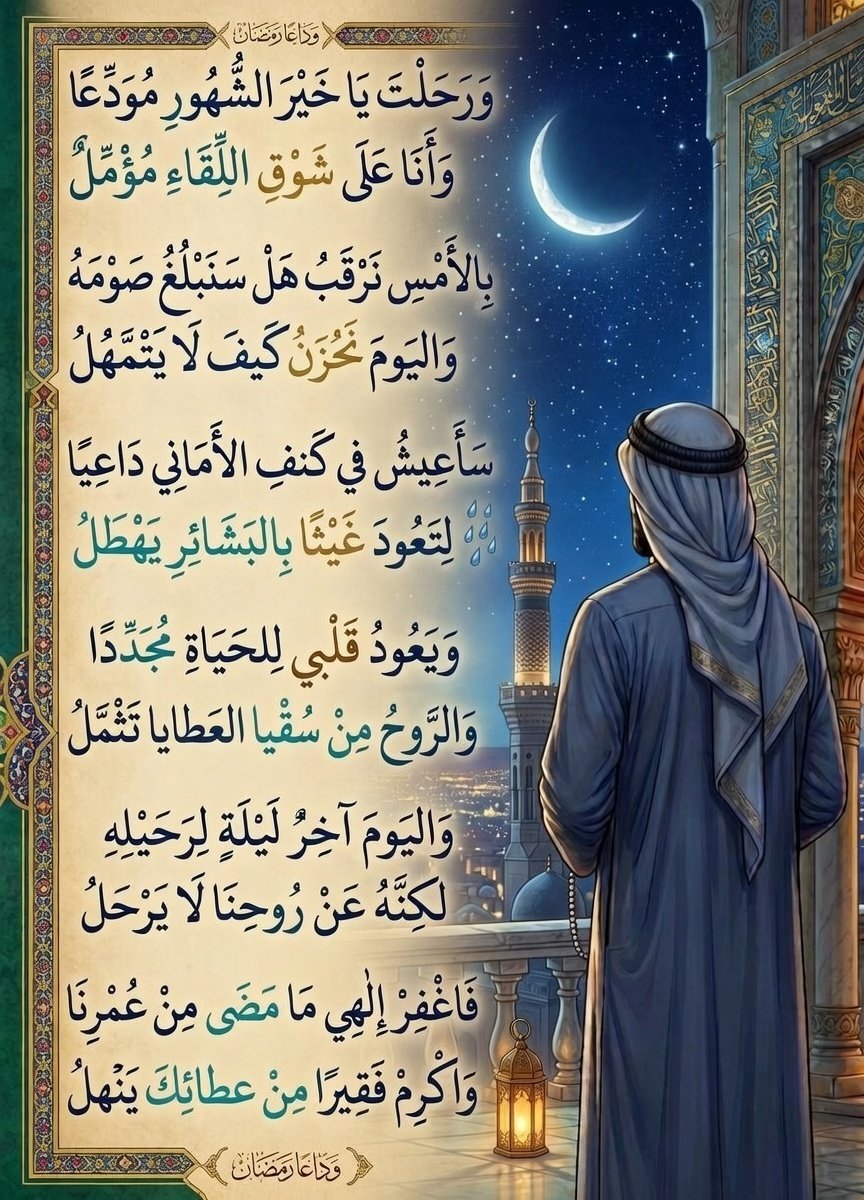 وَدَاعًا رَمَضَان
وَرَحَلْتَ يَا خَيْرَ الشُّهُورِ مُوَدِّعًا
وَأَنَا عَلَى شَوْقِ اللِّقَاءِ مُؤْمِّلٌ
بِالأَمْسِ نَرْقَبُ هَلْ سَنَبْلُغُ صَوْمَهُ
وَاليَومَ نَحْزَنُ كَيفَ لَا يَتْمَّهُلُ
سَأَعِيشُ في كَنفِ الأَمَانِي دَاعِيًا
لِتَعُودَ غَيْثًا بِالبَشَائِرِ يَهْطَلُ
وَيَعُودُ قَلْبي لِلحَيَاةِ مُجَدِّدًا
وَالرَّوحُ مِنْ سُقْيا العَطايا تَثْمَّلُ
وَاليَومَ آخِرٌ لَيْلَةٍ لِرَحَيْلِهِ
لكِنَّهُ عَنْ رُوحِنَا لَا يَرْحَلُ
فَاغْفِرْ إِلٰهِي مَا مَضَى مِنْ عُمْرِنَا
وَاكْرِمْ فَقِيرًا مِنْ عطائِكَ يَنْهلُ
وَدَاعًا رَمَضَان